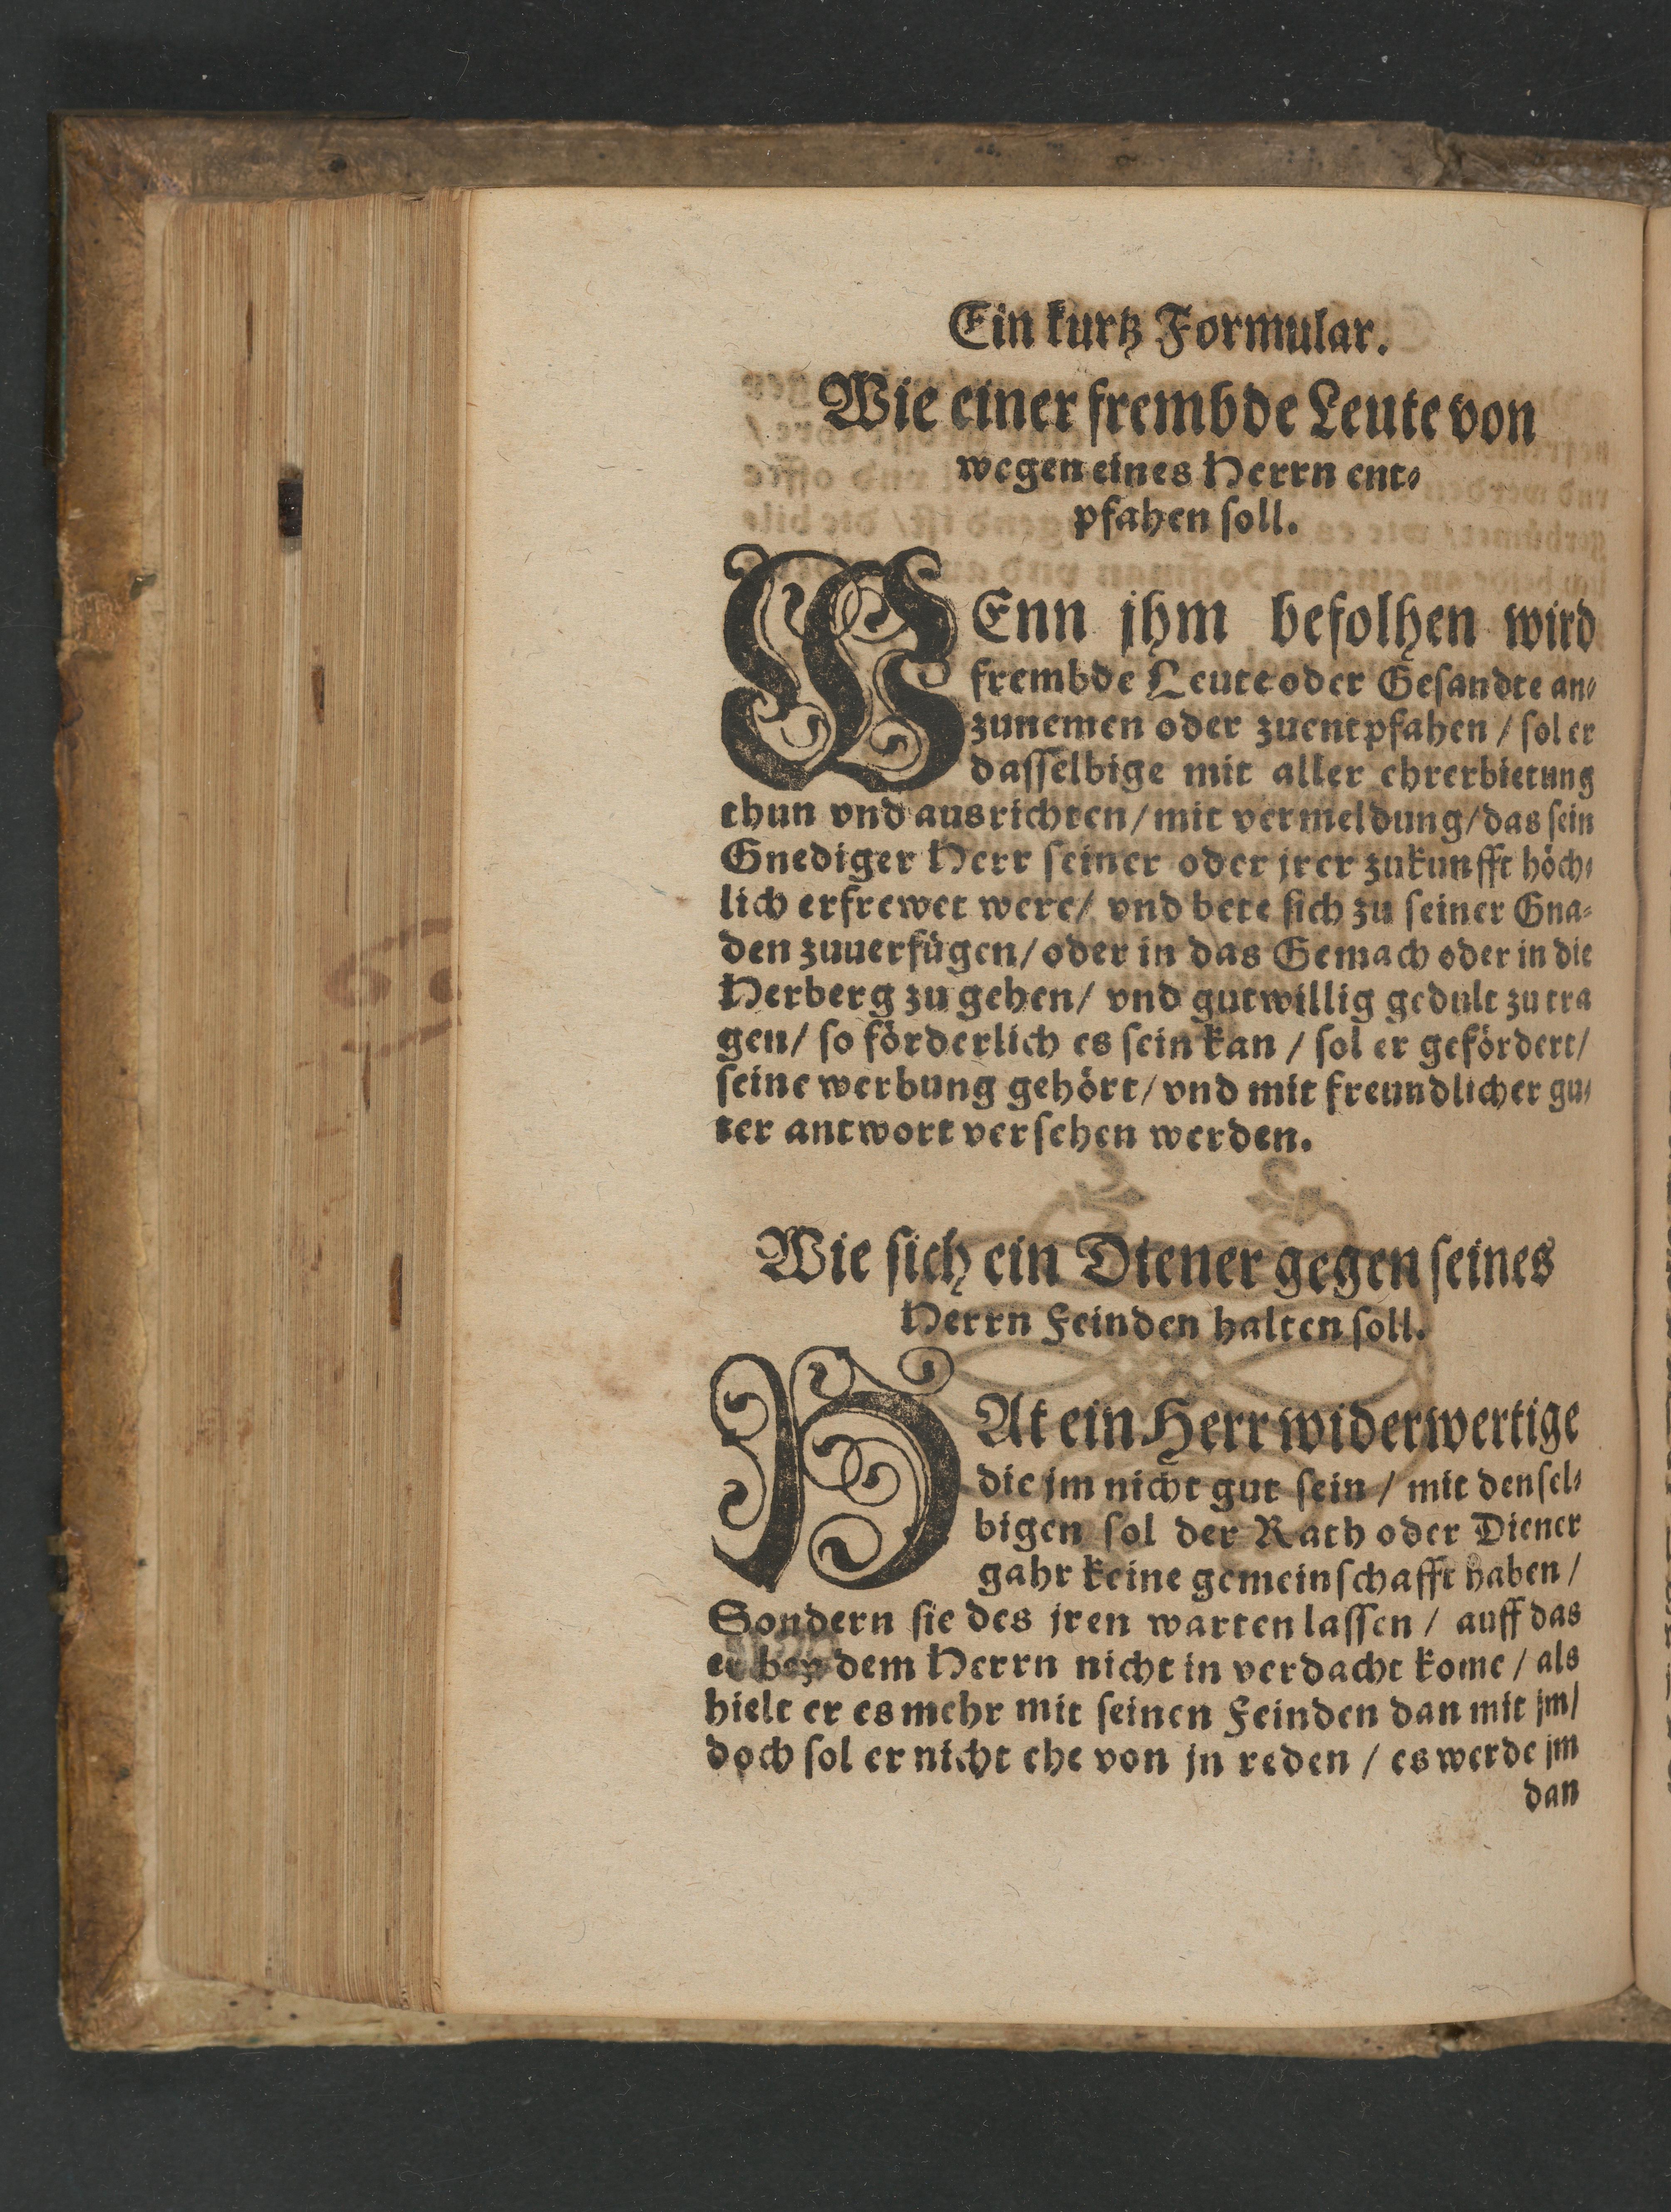 Ein kurtz Formular.
Wie einer frembde Leute von
wegen eines Herrn ent⸗
pfahen ſoll.
WEnn jhm befolhen wird
frembde Leute oder Geſandte an⸗
zunemen oder zuentpfahen / ſol er
daſſelbige mit aller ehrerbietung
thun vnd ausrichten / mit vermeldung / das ſein
Gnediger Herr ſeiner oder jrer zukunfft höch⸗
lich erfrewet were / vnd bete ſich zu ſeiner Gna⸗
den zuuerfügen / oder in das Gemach oder in die
Herberg zu gehen / vnd gutwillig gedult zu tra
gen / ſo förderlich es ſein kan / ſol er gefördert /
ſeine werbung gehört / vnd mit freundlicher gu⸗
ter antwort verſehen werden.
Wie ſich ein Diener gegen ſeines
Herrn Feinden halten ſoll.
HAt ein Herr widerwertige
die jm nicht gut ſein / mit denſel⸗
bigen ſol der Rath oder Diener
gahr keine gemeinſchafft haben /
Sondern ſie des jren warten laſſen / auff das
er bey dem Herrn nicht in verdacht kome / als
hielt er es mehr mit ſeinen Feinden dan mit jm /
doch ſol er nicht ehe von jn reden / es werde jm
dan